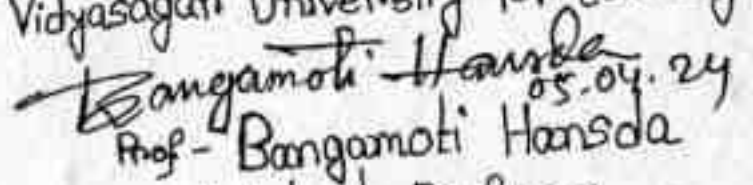 Vidyasagar University
Bangamoti Hansda
05.04.24
Prof- Bangamoti Hansda